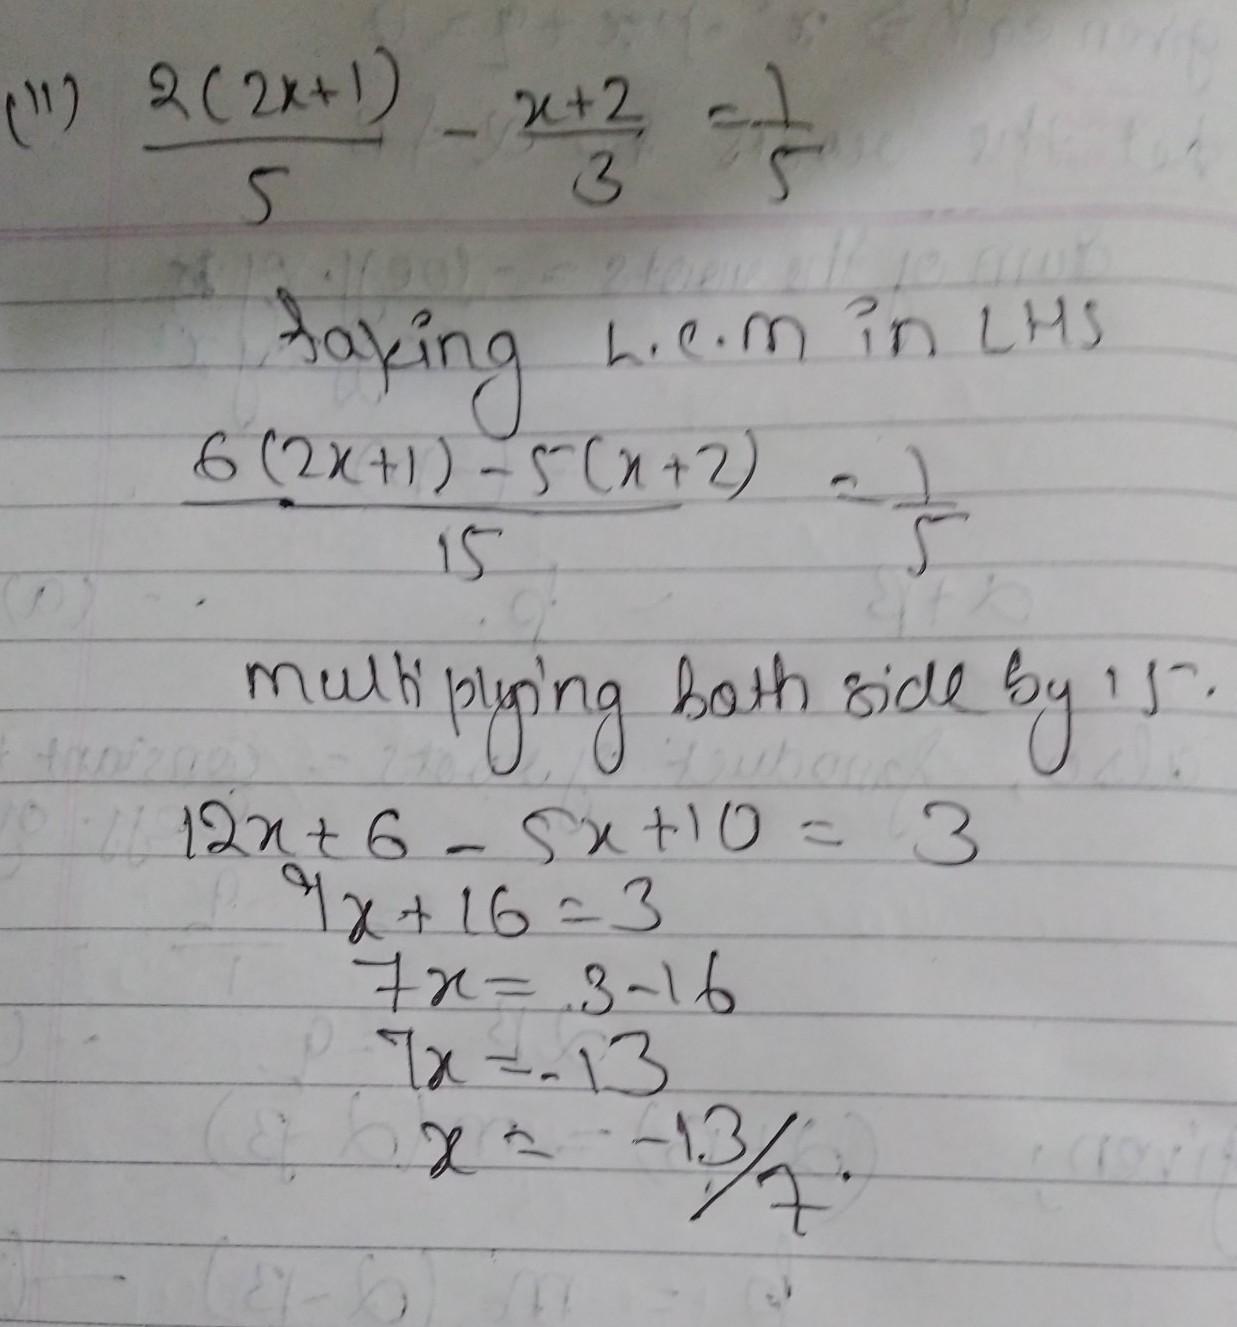 (ii) 2(2x+1)/5 - x+2/3 = 1/5
Taking L.C.M in LHS
6(2x+1)-5(x+2)/15 = 1/5
multiplying both side by 15.
12x+6-5x+10 = 3
7x+16=3
7x=3-16
7x=-13
x = -13/7.